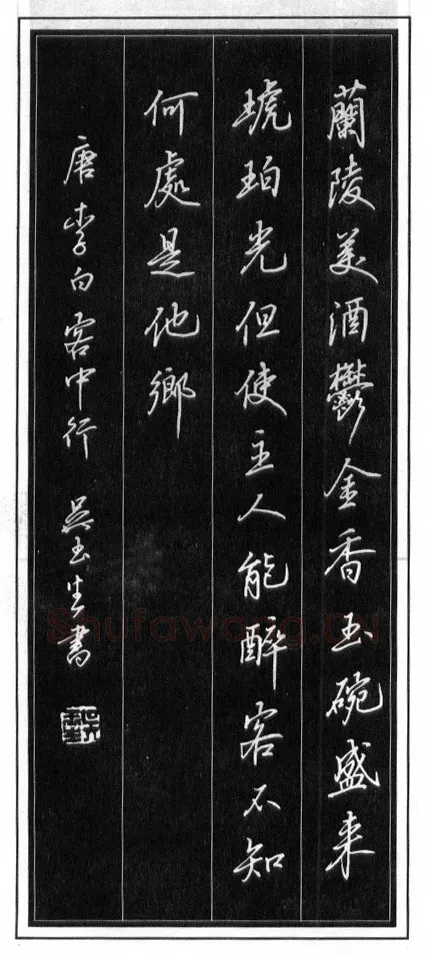 蘭陵美酒鬱金香玉碗盛来
琥珀光但使主人能醉客不知
何處是他鄉
唐李白客中行 吳玉生書
Shufawang.CN